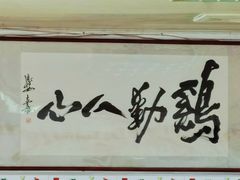 鷄動人心